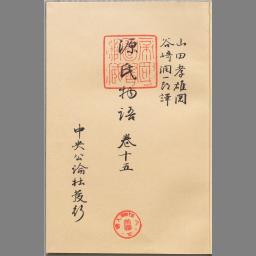 山田孝雄閲
谷崎潤一郎譯
源氏物語 巻十五
中央公論社發行